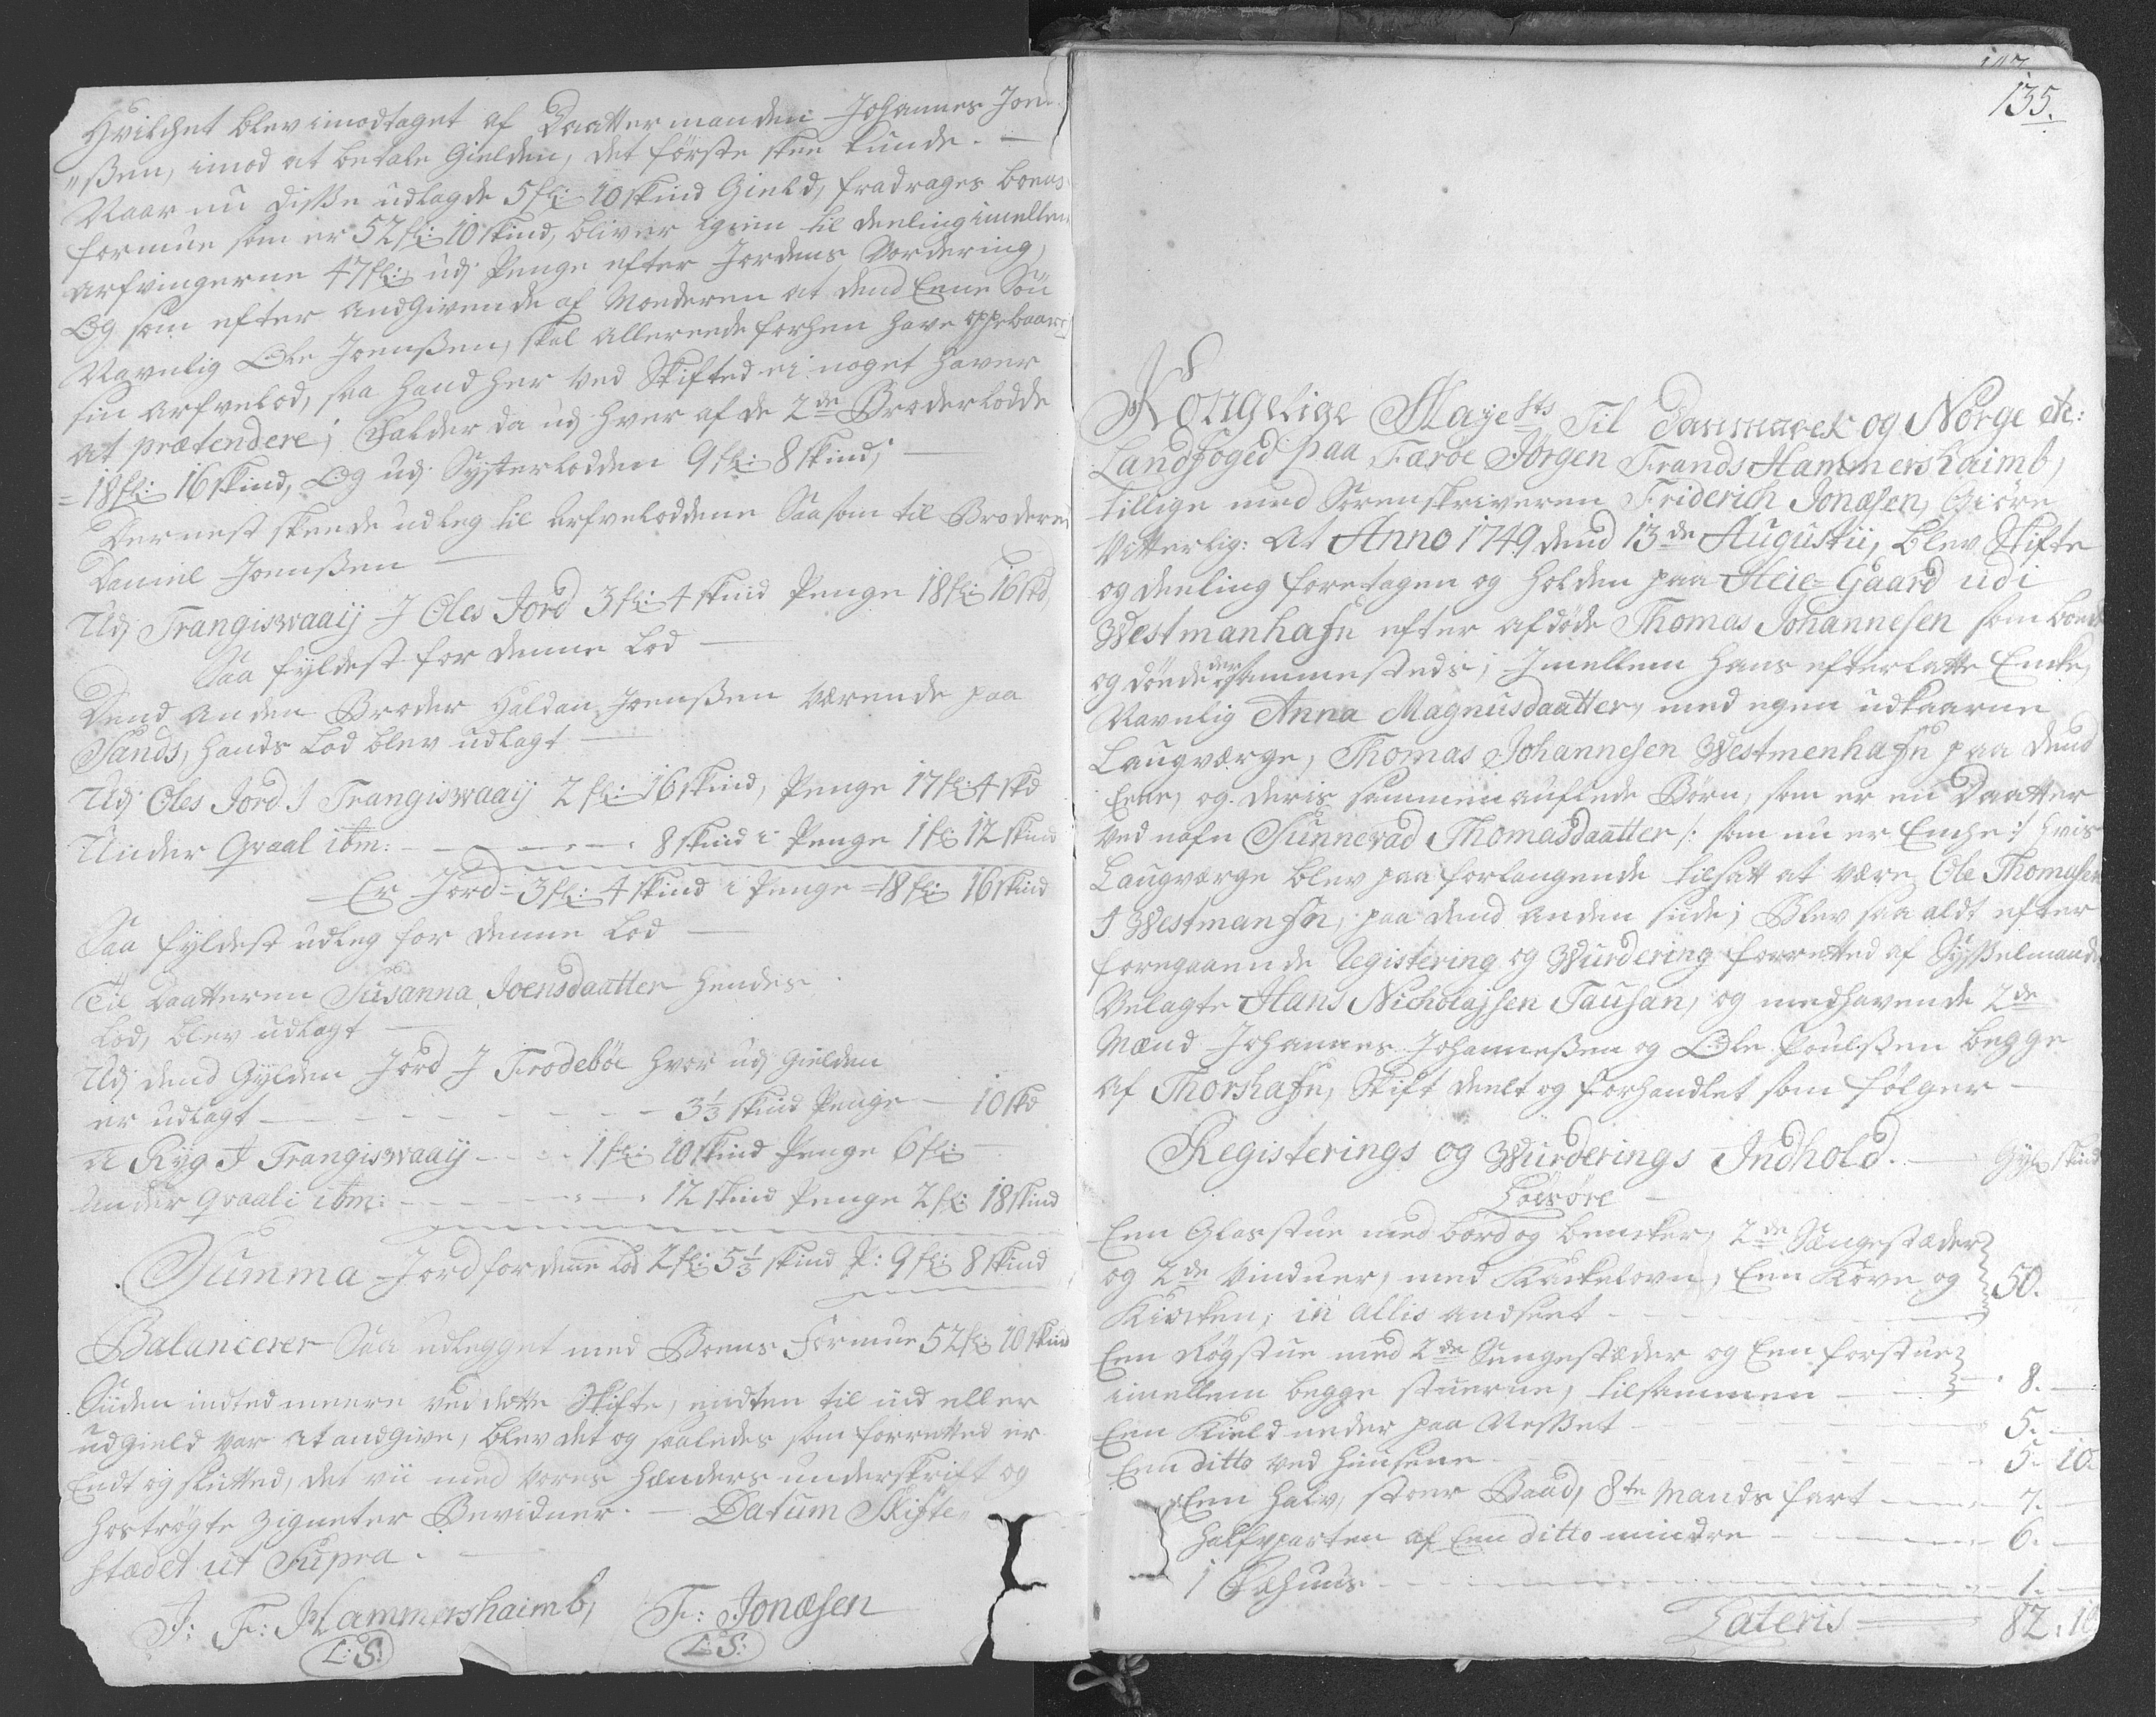 Hvilchet blev imodtaget af Daattermanden Johannes Jon-
"ßen, imod at betale Gielden, det første skee kunde. —
Naar nu disse udlagde 5 fl: 10 skind Gield, fradrages boens
formue som er 52 fl: 10 skind, bliver igien til deeling imellem
arfvingerne 47 fl: udj Penge efter Jordens Vordering,
Og som efter andgivende af Moderen at dend Eene Søn
Navnlig Ole Joenßen, skal allereede forhen have oppebaaret
sin arfvelod, saa hand her ved Skifted ei noget haver
at prætendere; Falder da udj hver af de 2de Broderlodde
=18 fl: 16 skind, Og udj Systerlodden 9 fl: 8 skind; —
Dernest skeede udleg til Arfveloddene Saasom til Broderen
Daniel Joenßen —
Udj Trangiswaaij J Oles Jord 3 fl: 4 skind Penge 18 fl: 16 skd
Saa fyldest for denne Lod —
Dend anden Broder Haldan Joenßen værende paa
Sands, hands Lod blev udlagt —
Udj Oles Jord J Trangiswaaij 2 fl: 16 skind, Penge 17 fl: 4 skd
Under Qvaal ibm: — — — 8 skind i Penge 1 fl: 12 skind
Er Jord = 3 fl: 4 skind i Penge = 18 fl: 16 skind
Saa fyldest udleg for denne Lod —
Til Daatteren Susanna Joensdaatter hendes
Lod, blev udlagt —
Udj dend Gylden Jord J Frodebøe hvor udj Gielden
er udlagt — — — — 3 1/3 skind Penge — 10 skd
A Ryg J Trangiswaaij — — 1 fl: 10 skind Penge 6 fl: —
Under Qvaal i ibm: — — — 12 skind Penge 2 fl: 18 skind
Summa Jord for denne Lod 2 fl: 5 1/3 skind P: 9 fl: 8 skind
Balancerer Saa udlegget med Boens Formue 52 fl: 10 skind
Siiden indted meere ved dette Skifte, endten til ind eller
udgield var at andgive, blev det og saaledes som forretted er
Endt og slutted, det vii med vores hænders underskrift og
hostrøgte Zigneter Bevidner. — Datum Skifte-
stædet ut Supra. —
J: F: Hammershaimb, F: Jonæsen
L:S: L:S:
135.
Kongelige Mayests Til Danmarck og Norge etc:
Landfoged paa Færøe Jørgen Frands Hammershaimb,
tillige med Sorenskriveren Friderich Jonæsen, Giøre
Vitterlig: At Anno 1749 dend 13de Augustii, blev Skifte
og deeling foretagen og holden paa Heie=Gaard udi
Westmanhafn efter afdøde Thomas Johannesen som boede
og døede dersammesteds; Imellem hans efterlatte Encke,
Navnlig Anna Magnusdaatter, med egen udkaarne
Laugværge, Thomas Johannesen Westmenhafn paa dend
Eene, og deris sammenauflede Børn, som er en Daatter
ved nafn Sunnevad Thomasdaatter /: som nu er Enche :/ hvis
Laugværge blev paa forlangende tilsatt at være Ole Thomasen
J Westmanhfn, paa dend anden side; Blev saa aldt efter
foregaaende Registering og Wurdering forretted af Sysselmanden
Velagte Hans Nicholajsen Tausan, og medhavende 2de
Mænd Johannes Johanneßen og Ole Poulßen begge
af Thorshafn, Skift deelt og forhandlet som følger —
Registerings og Wurderings Indhold. — Gyl: skind
Løesøre —
Een Glasstue med bord og bencker, 2de Sængestæder
og 2de Vinduer, med Kackelovn, Een Kove og
Kiøcken; in allis andseet — — 50. —
Een Røgstue med 2de Sengestæder og Een forstue
imellem begge stuerne, tilsammen — — 8. —
Een Kield neder paa Neßet — — 5. —
Een ditto ved huusene — — 5. 10.
Een halv, stoer Baad, 8te Mands fart — — 7. —
Halfveparten af Een ditto mindre — — 6. —
1 Fæhuus — — 1. —
Lateris — 82. 10